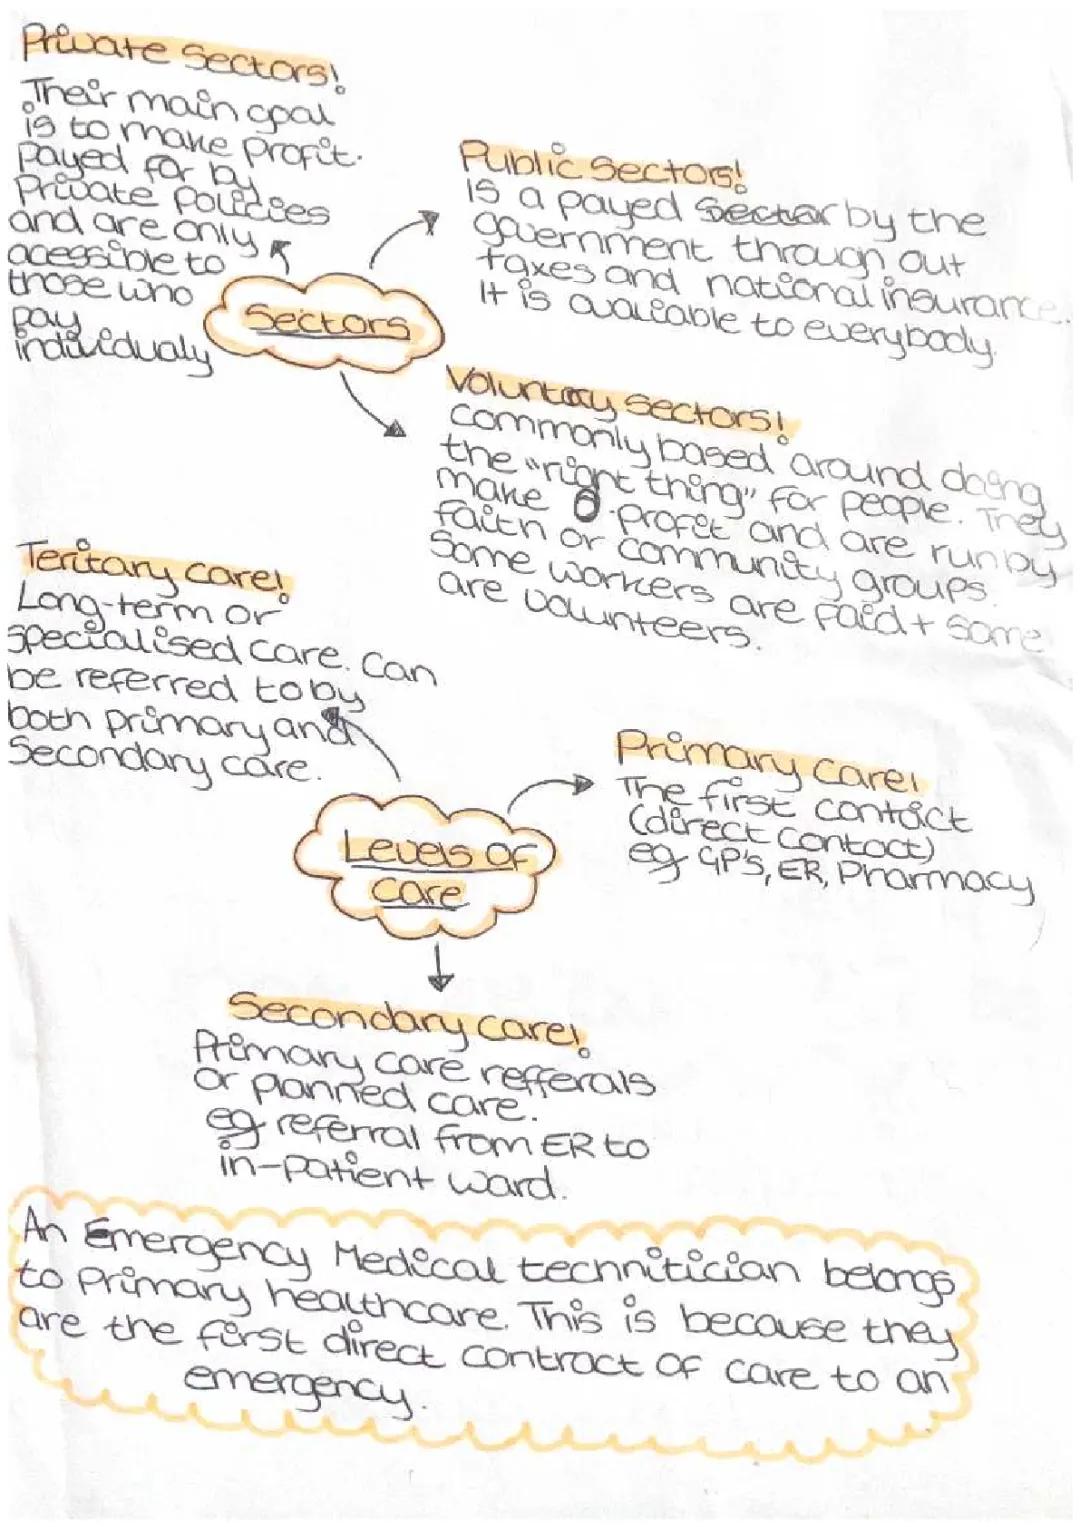 Private Sectors!
Their main goal
is to make profit.
Payed for by
Private Policies
and are only
acessible to
those who
pay
individualy
Sectors
Public Sectors!
is a payed sector by the
government through out
taxes and national insurance.
It is avaliable to everybody.
Voluntary Sectors!
commonly based around doing
the "right thing" for people. They
make 0 profit and are run by
faith or community groups.
Some workers are paid + some
are volunteers.
Teritary care!
Long-term or
specialised care. Can
be referred to by
both primary and
Secondary care.
Levels of
care
Primary care!
The first contact
(direct contact)
eg GP's, ER, Pharmacy
Secondary care!
Primary care refferals
or planned care.
eg referral from ER to
in-patient ward.
An Emergency Medical technitician belongs
to Primary healthcare. This is because they
are the first direct contract of care to an
emergency.